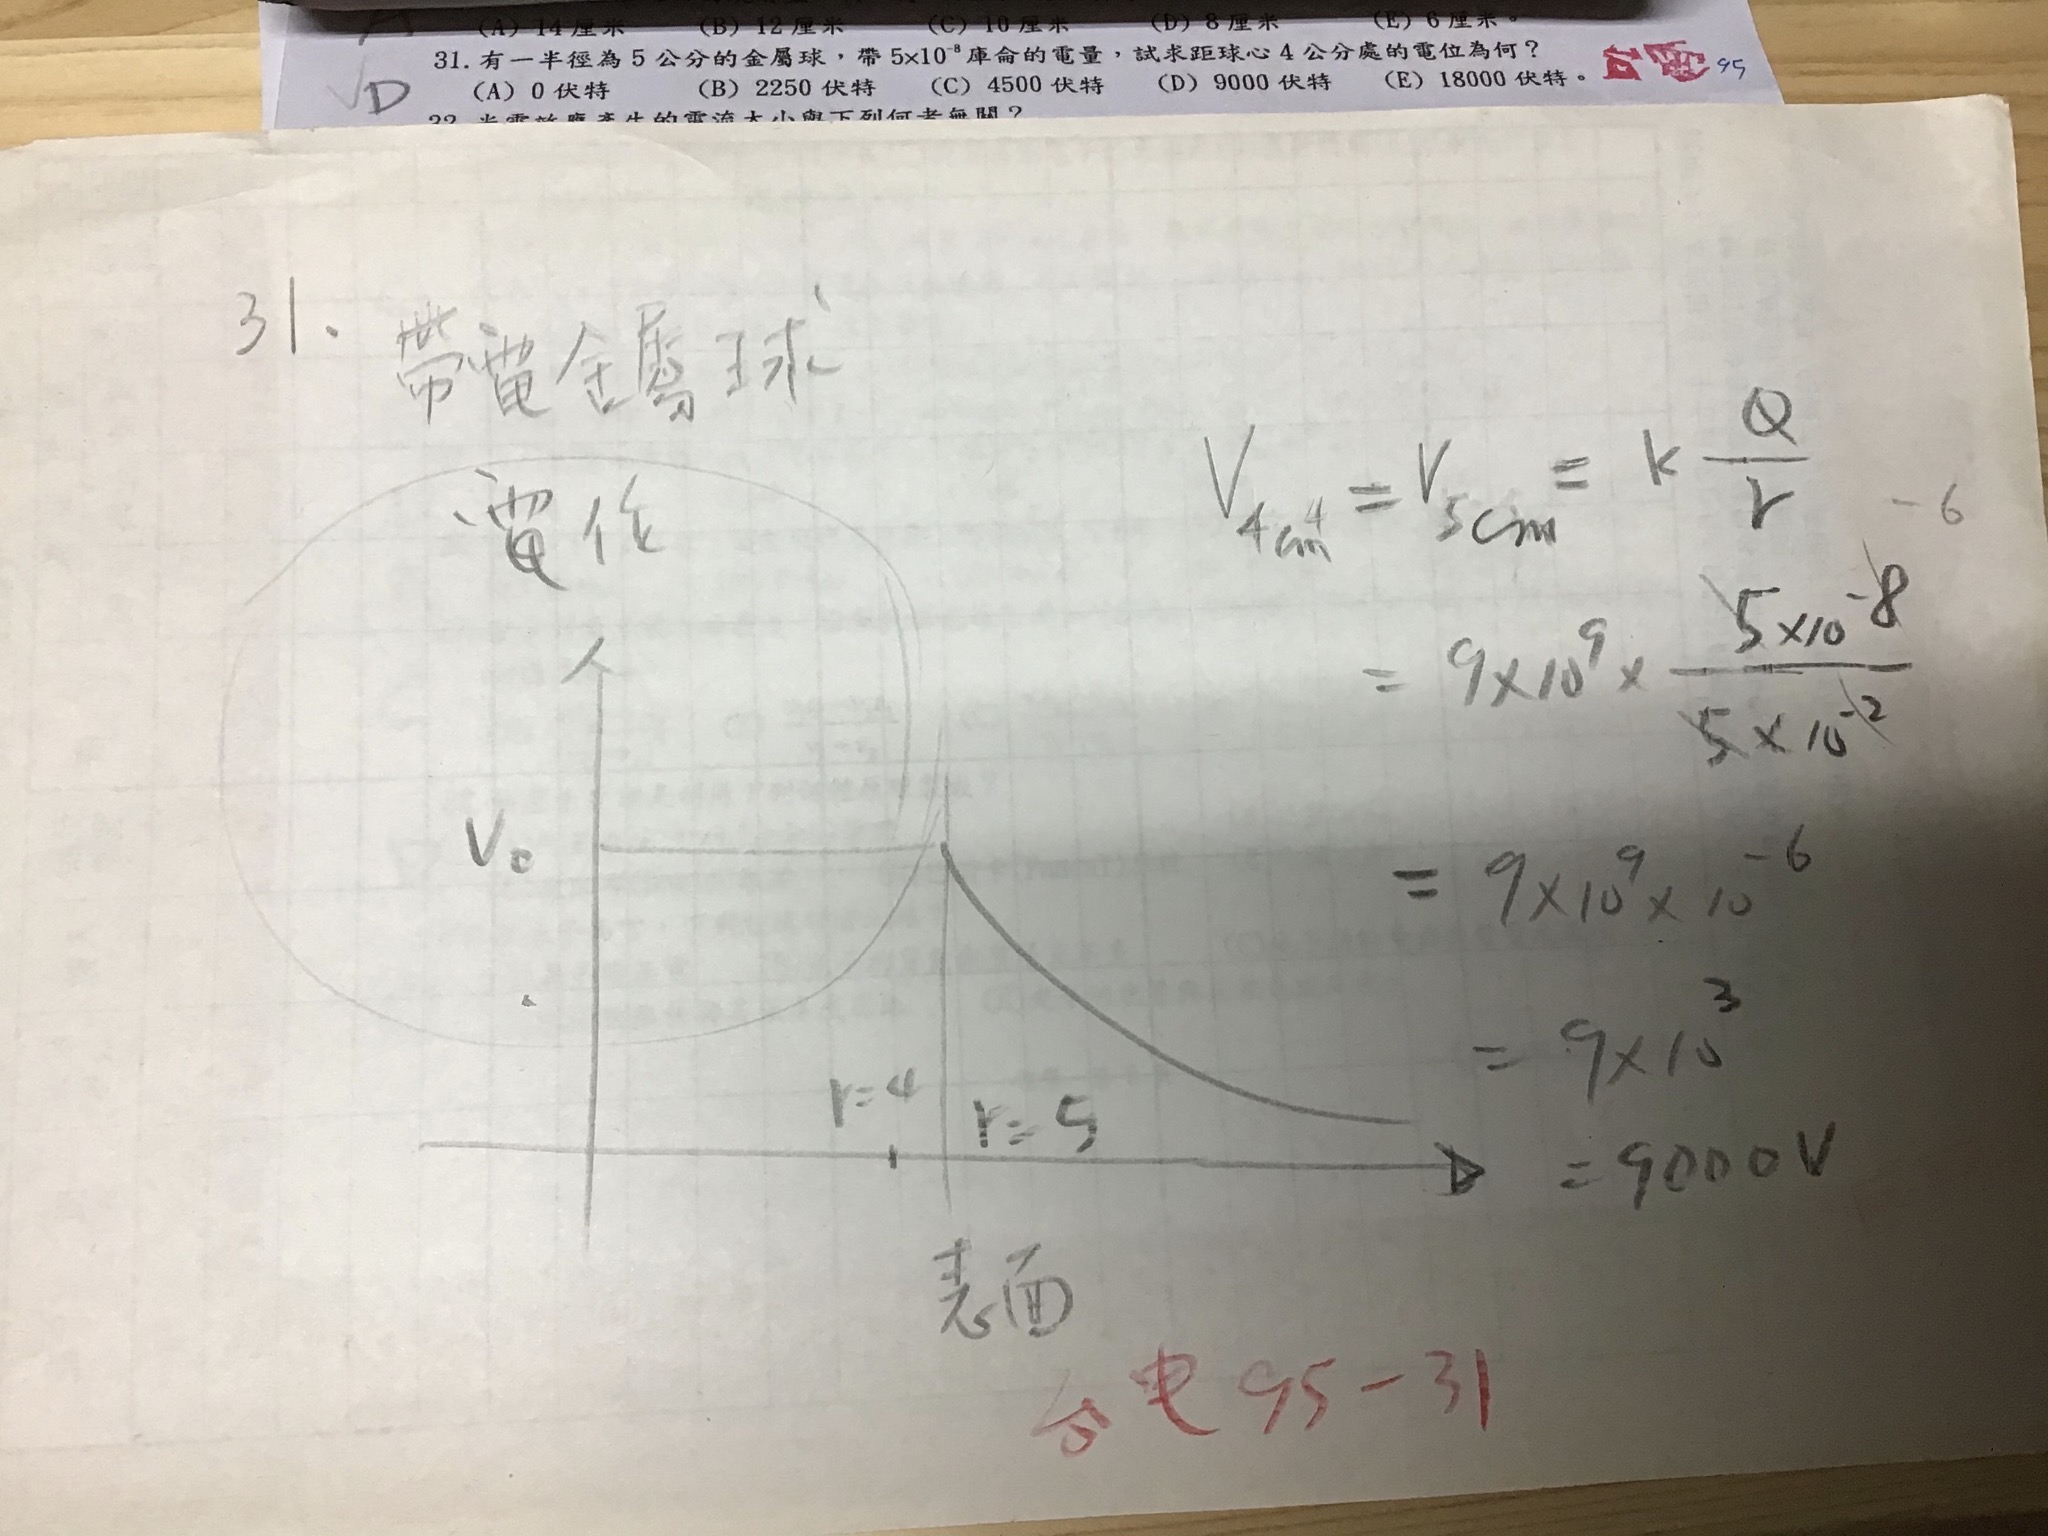 (A) 14 厘米 (B) 12 厘米 (C) 10 厘米 (D) 8 厘米 (E) 6 厘米。
31. 有一半徑為 5 公分的金屬球，帶 5×10⁻⁸ 庫侖的電量，試求距球心 4 公分處的電位為何？ 台電 95
VD (A) 0 伏特 (B) 2250 伏特 (C) 4500 伏特 (D) 9000 伏特 (E) 18000 伏特。
32. 光電效應產生的電流大小與下列何者無關？
31. 帶電金屬球
電位
V₀
r=4
r=5
表面
V₄cm = V₅cm = k Q/r
-6
= 9×10⁹ × 5×10⁻⁸/5×10⁻²
= 9×10⁹×10⁻⁶
= 9×10³
= 9000V
台电 95-31